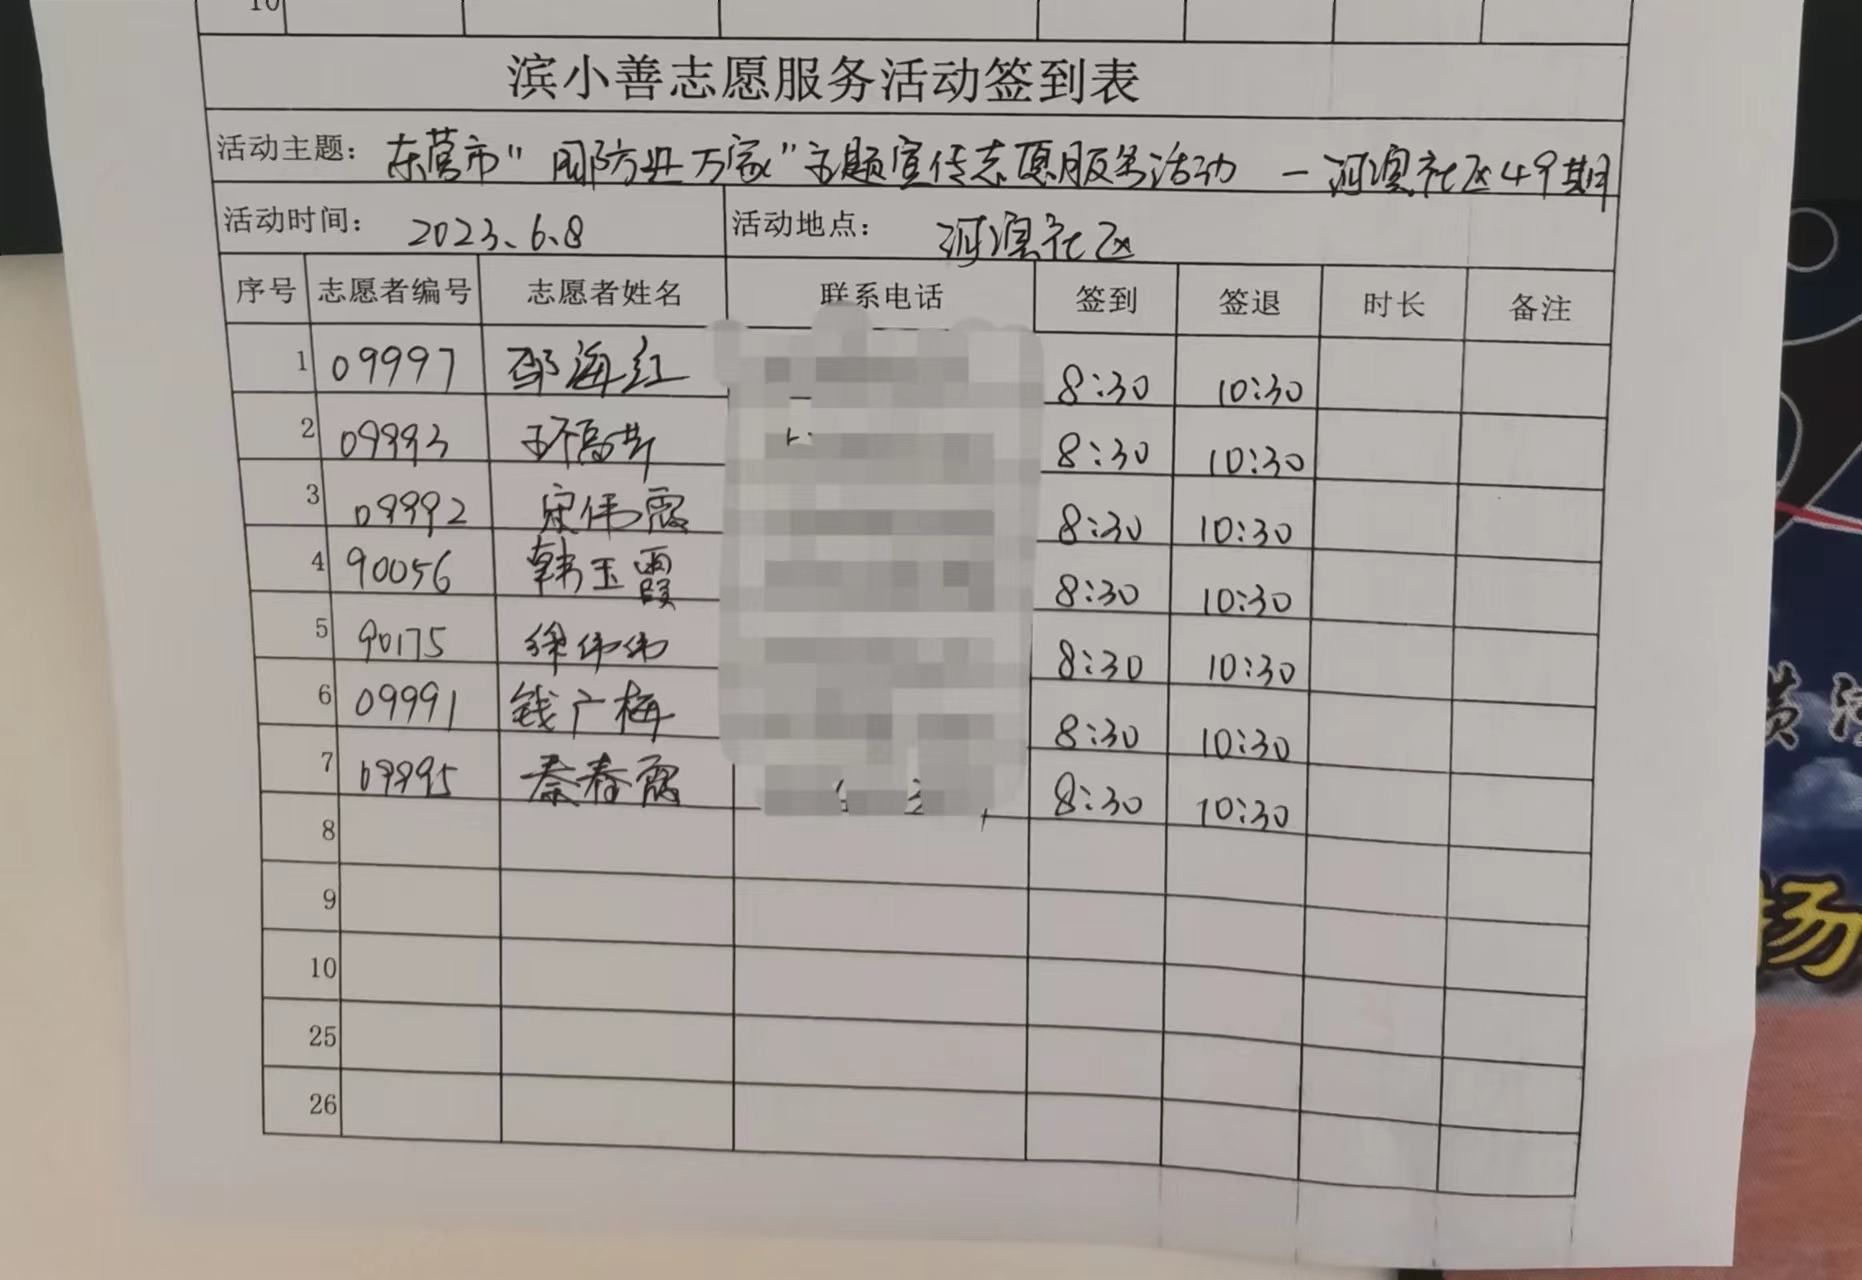 10
滨小善志愿服务活动签到表
活动主题： 东营市"国防进万家"主题宣传志愿服务活动 — 河滨社区49期
活动时间： 2023、6、8 活动地点： 河滨社区
序号 志愿者编号 志愿者姓名 联系电话 签到 签退 时长 备注
1 09997 邵海红 8:30 10:30
2 09993 8:30 10:30
3 09992 宋伟霞 8:30 10:30
4 90056 韩玉霞 8:30 10:30
5 90175 徐伟伟 8:30 10:30
6 09991 钱广梅 8:30 10:30
7 09995 秦春霞 8:30 10:30
8
9
10
25
26
扬